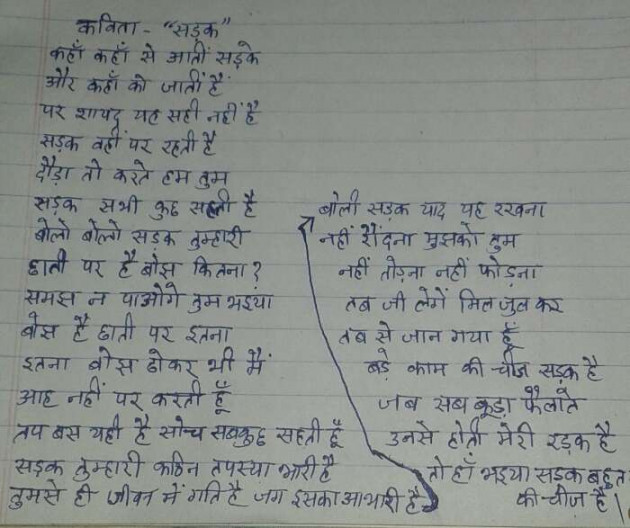 कविता - "सड़क"
कहाँ कहाँ से आतीं सड़के
और कहाँ को जातीं हैं
पर शायद यह सही नहीं है
सड़क वहीं पर रहती है
दौड़ा तो करते हम तुम
सड़क सभी कुछ सहती है
बोलो बोलो सड़क तुम्हारी
छाती पर है बोझ कितना?
समझ न पाओगे तुम भइया
बोझ है छाती पर इतना
इतना बोझ ढोकर भी मैं
आह नहीं पर करती हूँ
तप बस यही है सोच सबकुछ सहती हूँ
सड़क तुम्हारी कठिन तपस्या भारी है
तुमसे ही जीवन में गति है जग इसका आभारी है
बोली सड़क याद यह रखना
नहीं रौंदना मुझको तुम
नहीं तोड़ना नहीं फोड़ना
तब जी लेगें मिल जुल कर
तब से जान गया हूँ
बड़े काम की चीज सड़क है
जब सब कूड़ा फैलाते
उनसे होती मेरी रड़क है
तो हाँ भइया सड़क बहुत
की चीज़ है।